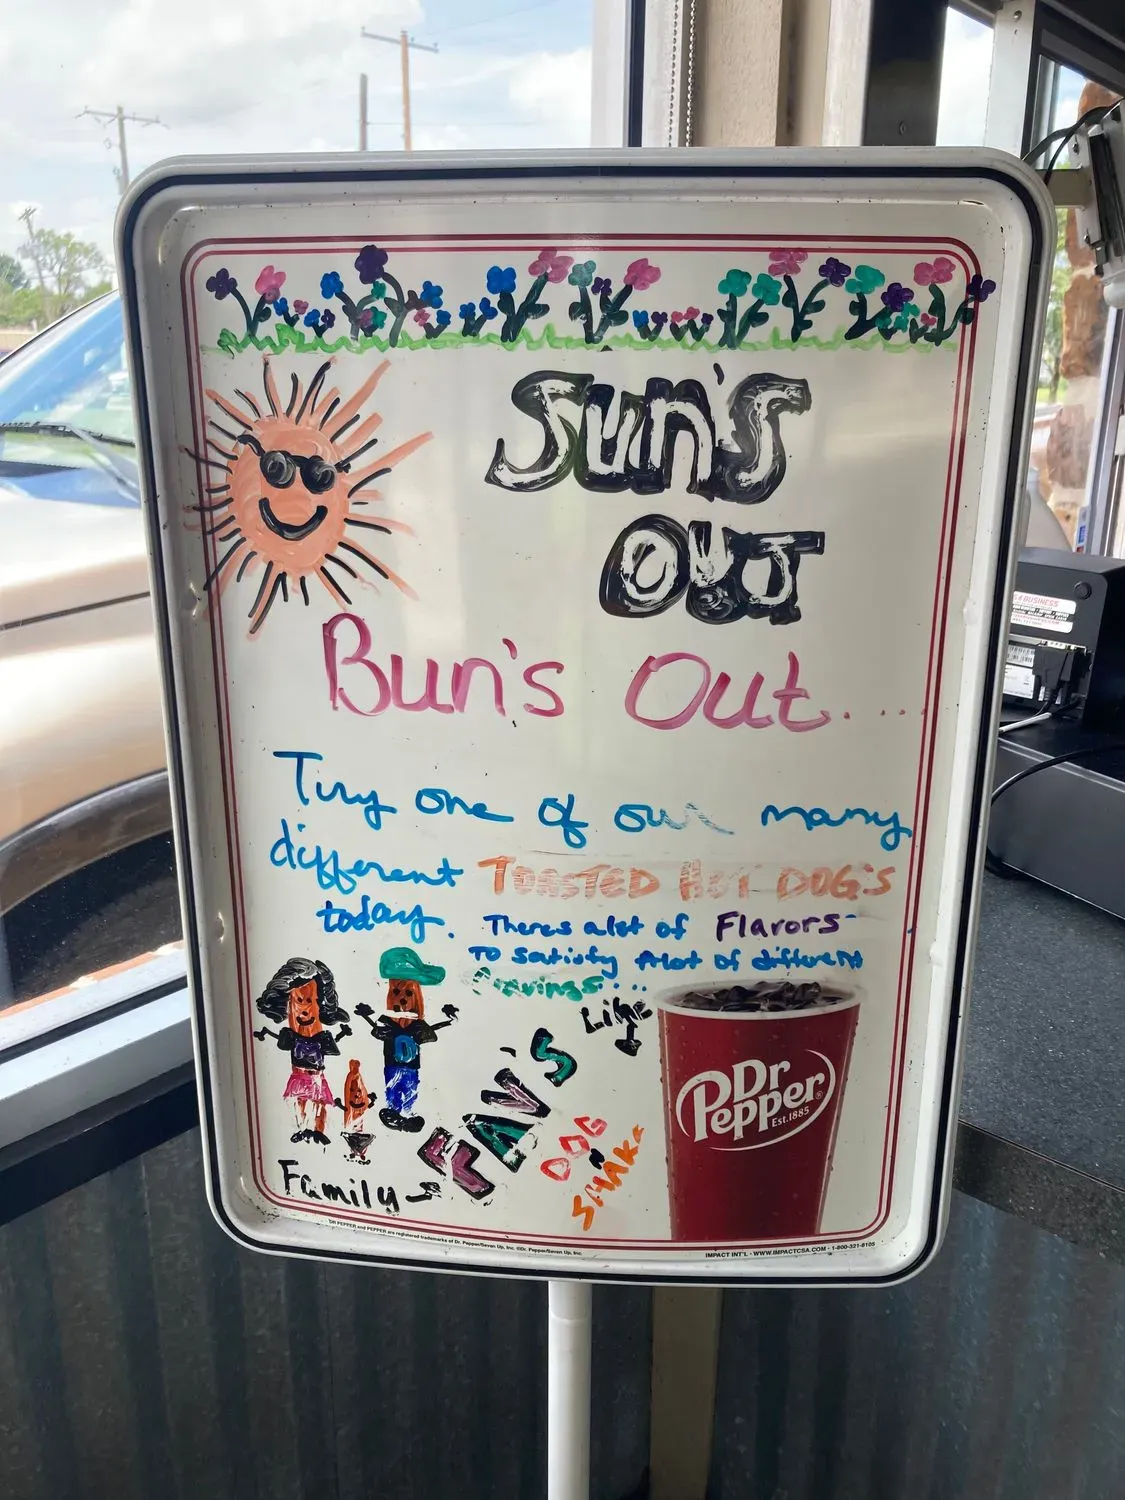 Sun's
Out
Bun's Out....
Try one of our many
different TOASTED HOT DOG'S
today. Theres alot of Flavors
To satisfy Alot of different
Cravings....
Like
FAV'S
DOG
N
SHAKE
Family
Dr
Pepper
Est.1885
DR PEPPER and PEPPER are registered trademarks of Dr. Pepper/Seven Up, Inc. ©Dr. Pepper/Seven Up, Inc.
IMPACT INT'L - WWW.IMPACTCSA.COM - 1-800-321-8105
BUSINESS